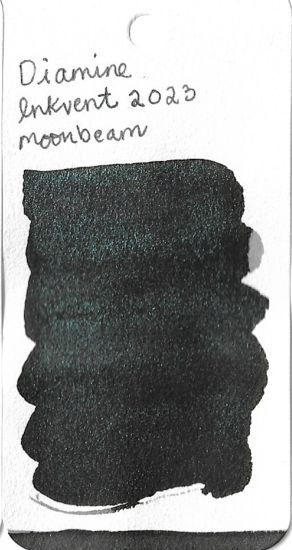 Diamine
Inkvent 2023
moonbeam